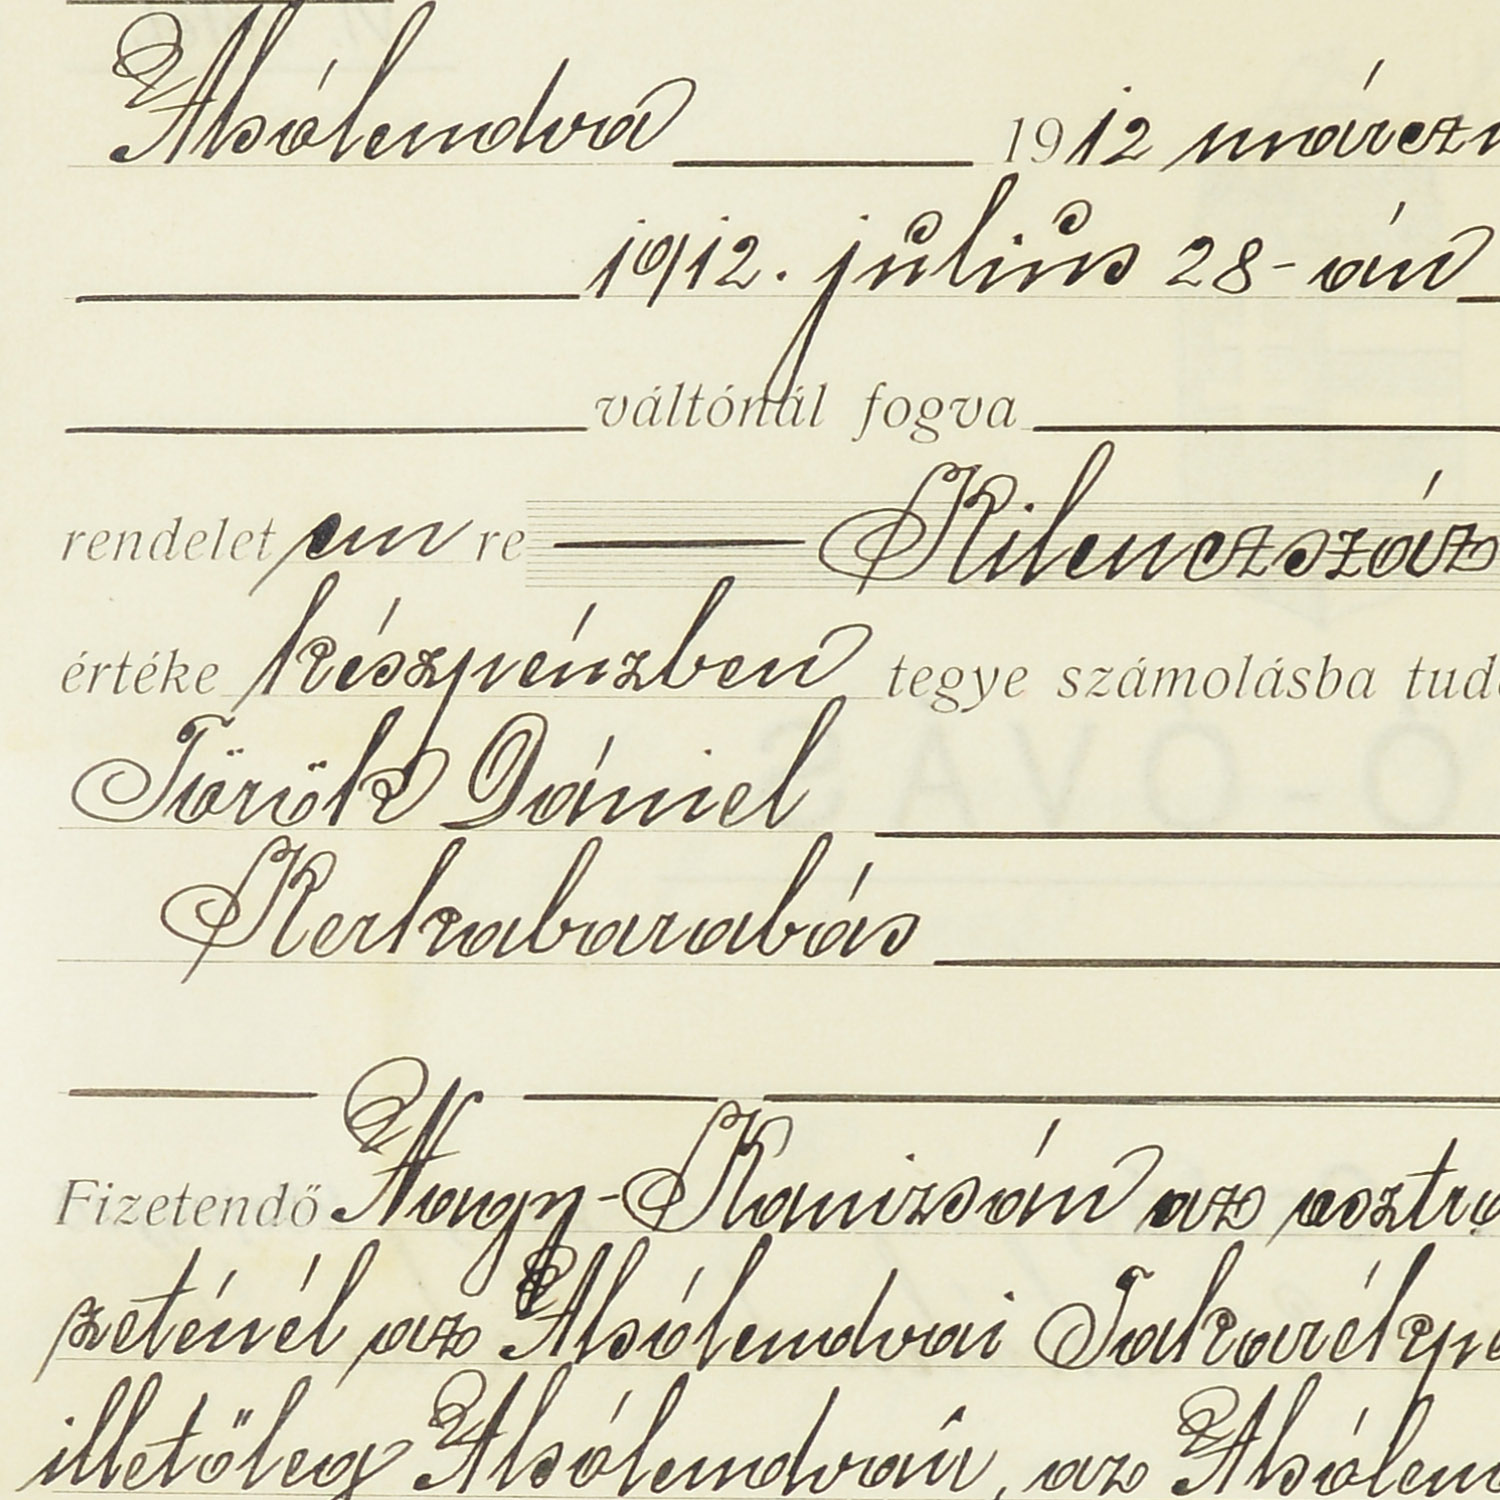 Alsólendva 1912 márczi
1912. július 28-án
váltónál fogva
rendelet em re Kilenczszáz
értéke készpénzben tegye számolásba tud
Török Dániel
Kerkabarabás
Fizetendő Nagy-Kanizsán az osztr
zeténél az Alsólendvai Takarékp
illetőleg Alsólendván, az Alsólen